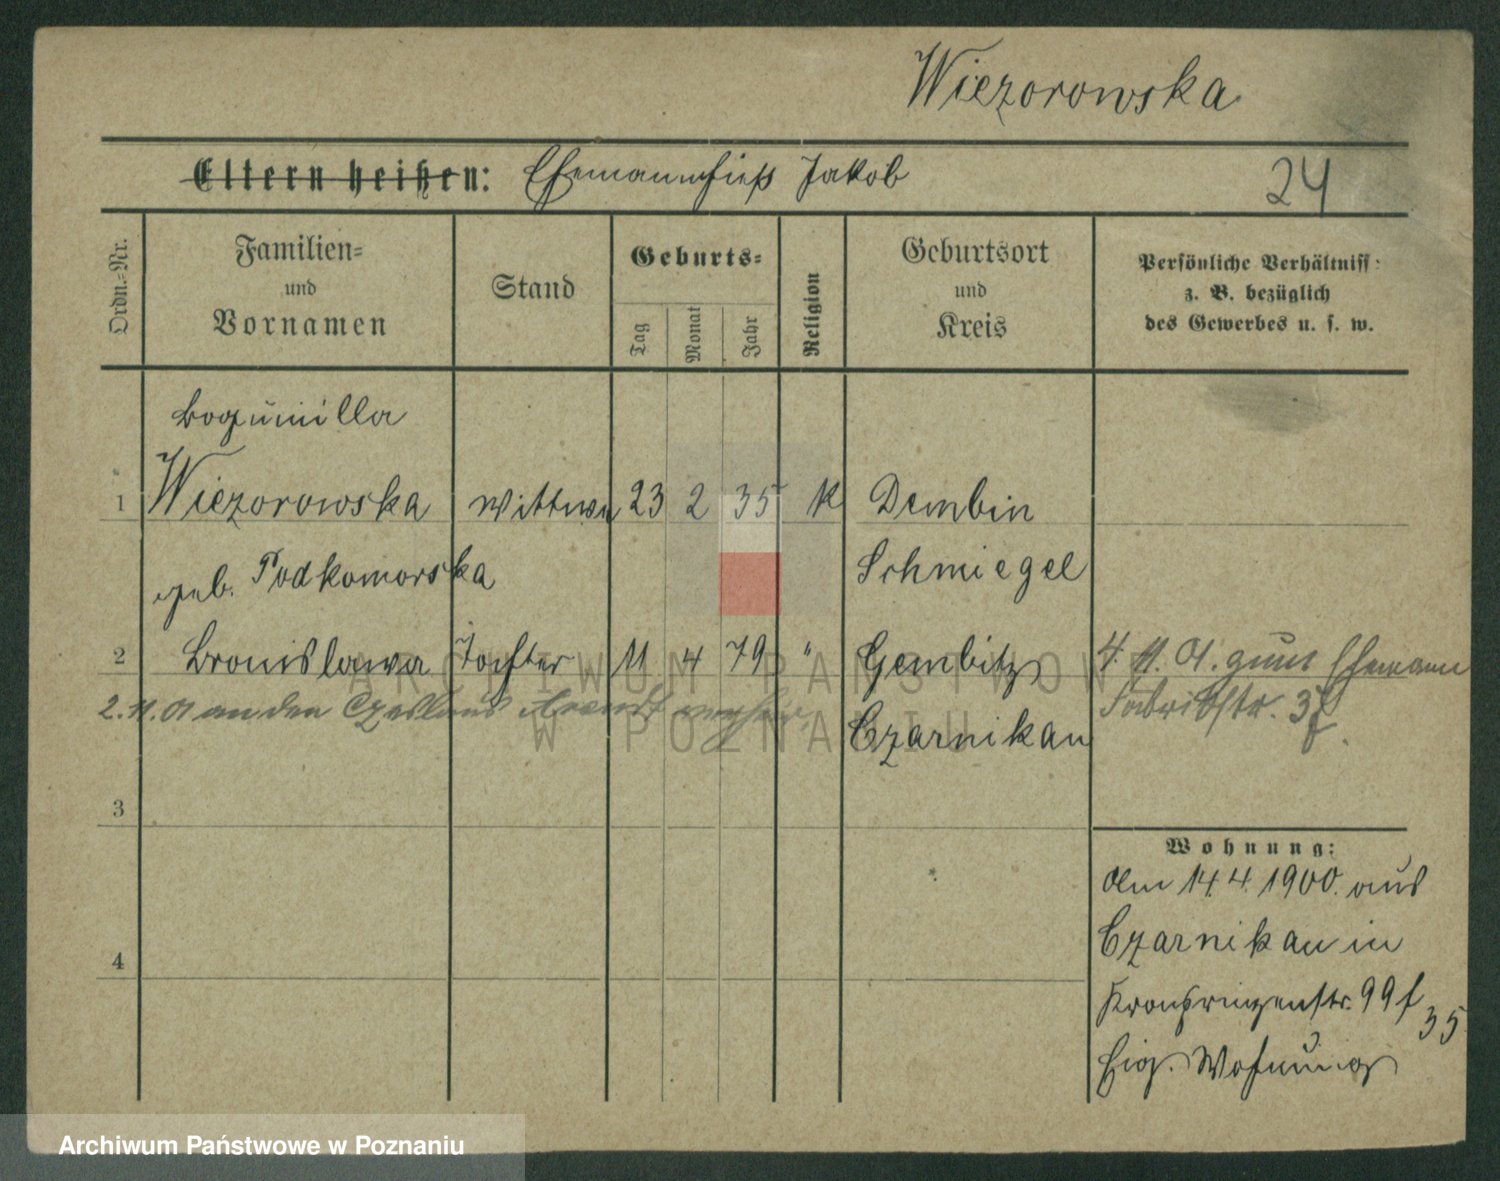 Wiezorowska
Eltern heißen: Ehemann hieß Jakob
24
Ordn.-Nr.
Familien-
und
Vornamen
Stand
Geburts-
Tag
Monat
Jahr
Religion
Geburtsort
und
Kreis
Persönliche Verhältniss
z. B. bezüglich
des Gewerbes u. s. w.
Bogumilla
1 Wiezorowska Wittwe 23 2 35 K Dembin
geb. Podkomorska Schmiegel
2 Bronislawa Tochter 11 4 79 " Gembitz 4. 11. 01. zum Ehemann
2. 11. 01 an den Czeslaus Arendt Fabrikstr. 37.
Czarnikau
3
Wohnung:
Am 14. 4. 1900. aus
4 Czarnikau in
Kronprinzenstr. 99f
35
Eig. Wohnung
ARCHIWUM PAŃSTWOWE
W POZNANIU
Archiwum Państwowe w Poznaniu